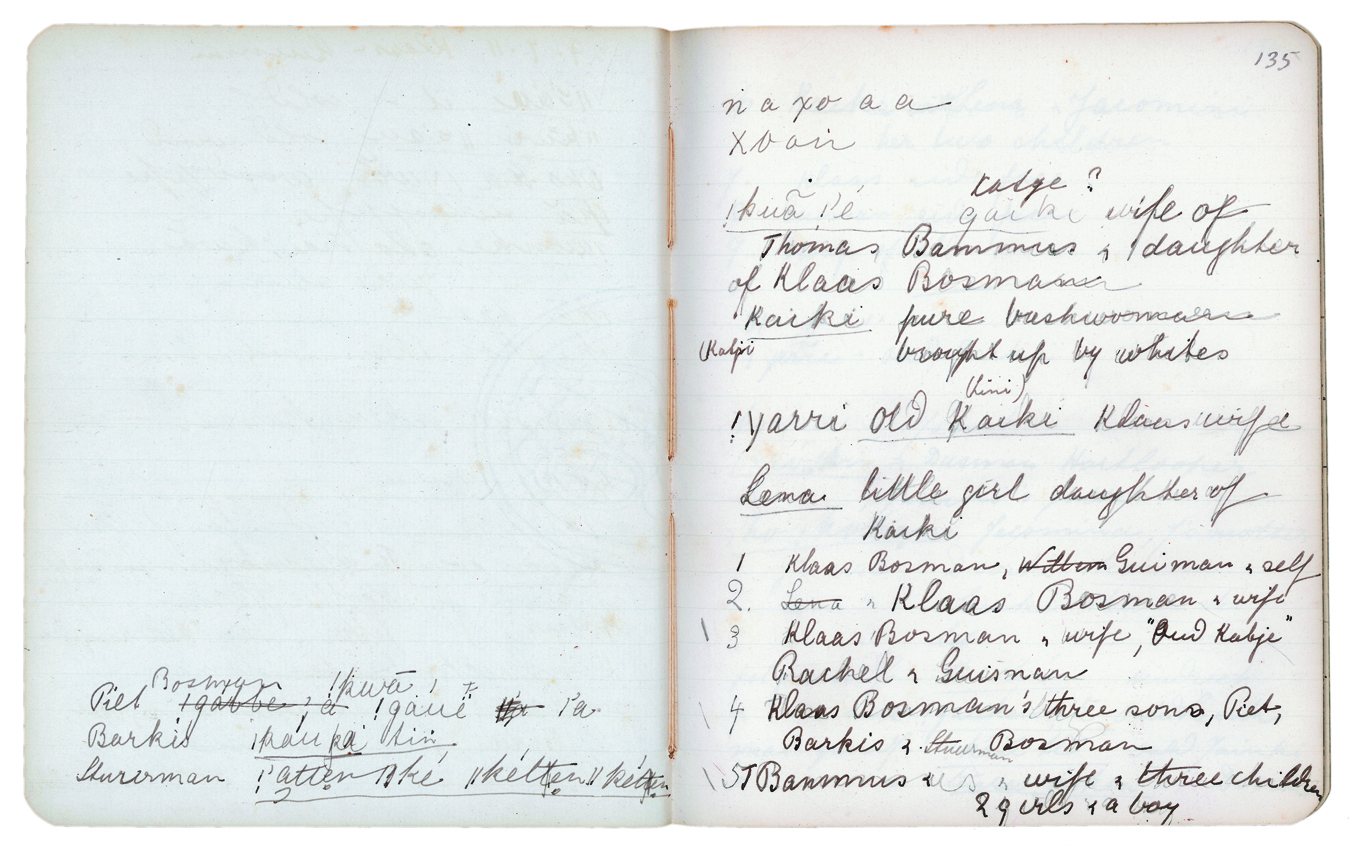 Piet Bosman !kwā
!gabbe ! a !gauë !'a
Barkis !kau ka tin
Stuurerman !'atten ǁké ǁkétten ǁkétten
135
n a xo a a
xoain
Katje ?
!kuā !'é gaiki wife of
Thomas Bammus & daughter
of Klaas Bosman
Kaiki pure bushwoman
(Katji brought up by whites
(Kini)
!yarri Old Kaiki Klaas wife
Lena little girl daughter of
Kaiki
1 Klaas Bosman, Willem Guiman & self
2. Lena & Klaas Bosman & wife
3 Klaas Bosman & wife, "Oud Katje"
Rachel & Guisman
4 Klaas Bosman's three sons, Piet,
Barkis & Stuurman Bosman
5 T Bammus & wife & three children
2 girls & a boy